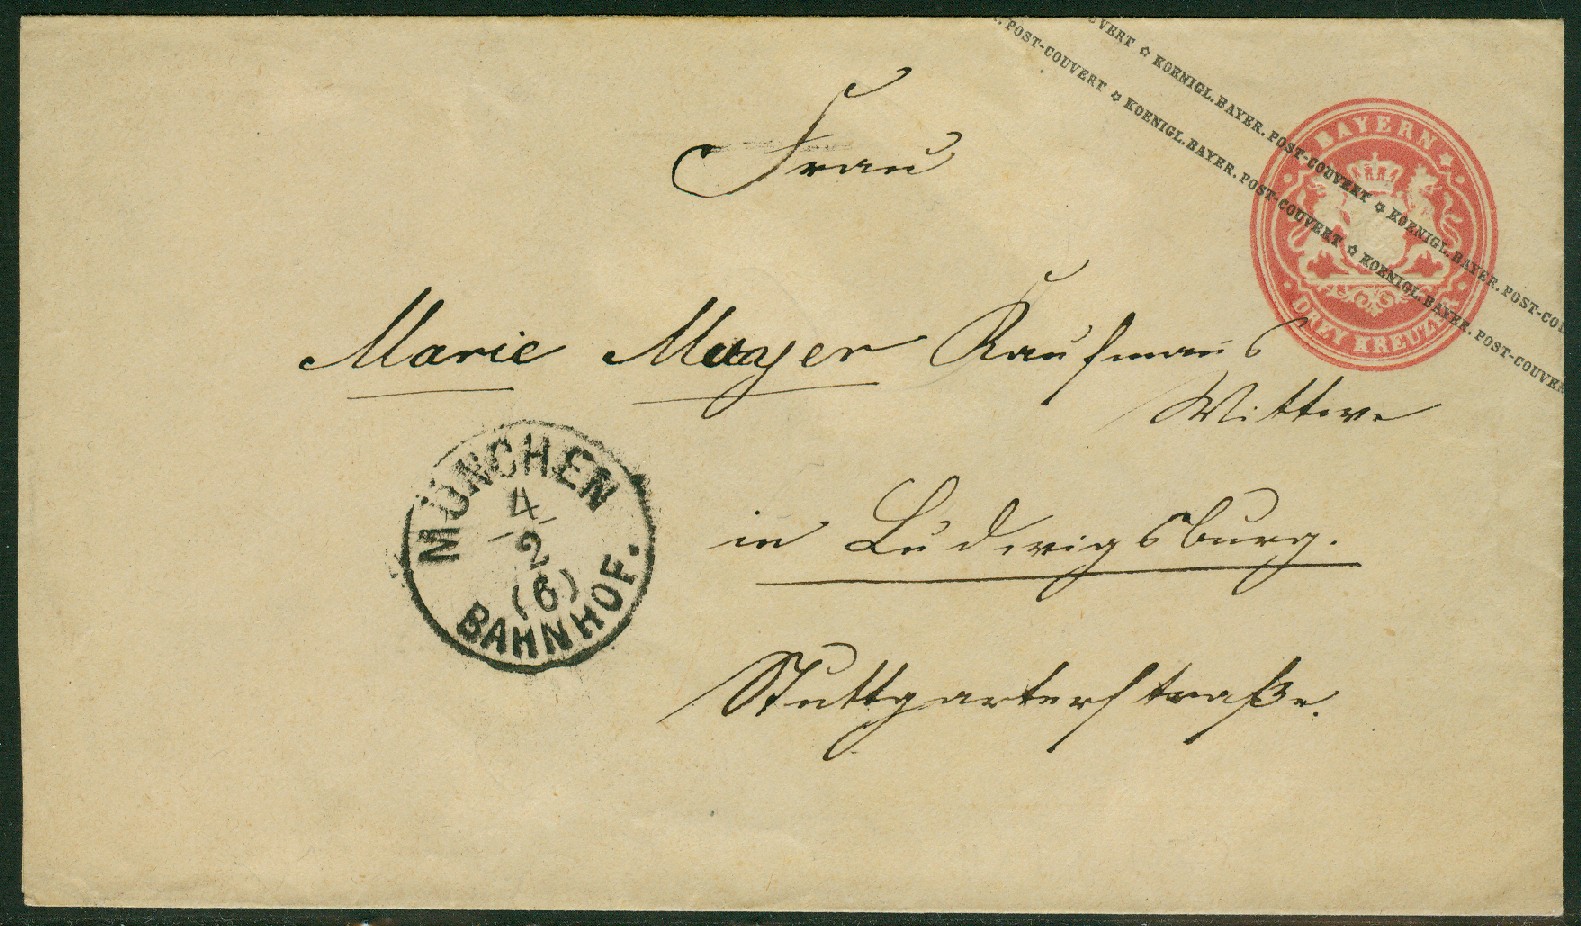 VERT ✩ KOENIGL. BAYER. POST-COUVERT ✩ KOENIGL. BAYER. POST-COU
. POST-COUVERT ✩ KOENIGL. BAYER. POST-COUVERT ✩ KOENIGL. BAYER. POST-COUVER
BAYERN
DREI KREUZER
Frau
Marie Mayer Kaufmanns
Wittwe
in Ludwigsburg.
Stuttgarterstraße.
MÜNCHEN
4
2
(6)
BAHNHOF.